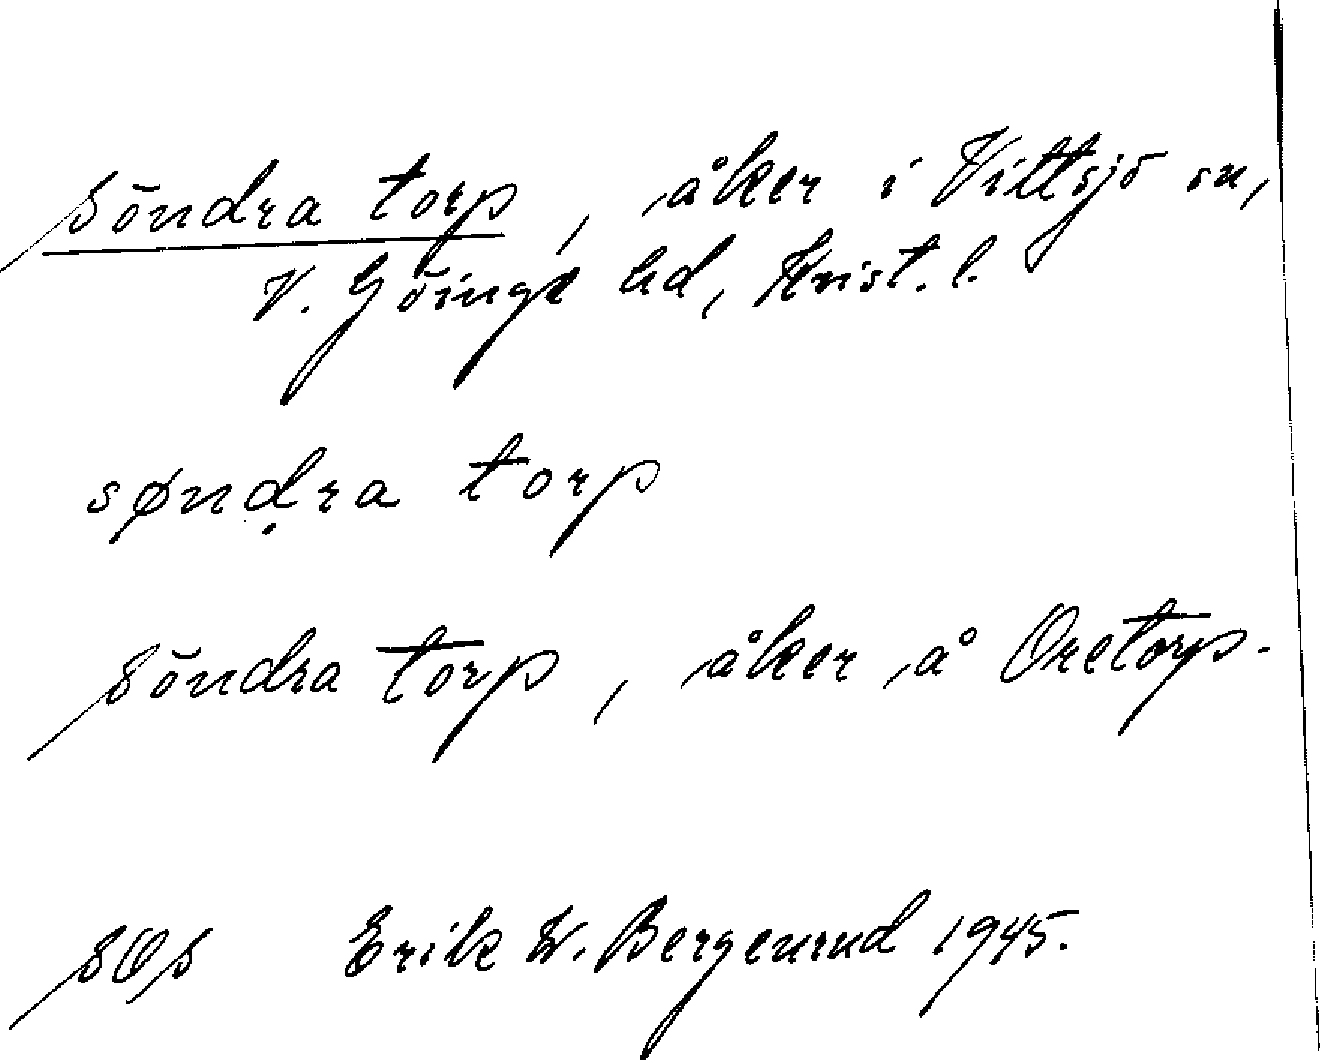 Söndra torp, åker i Vittsjö sn,
V. Göinge hd, Krist. l.
søndra torp
Söndra torp, åker å Oretorp.
SOS Erik W. Bergenrud 1945.